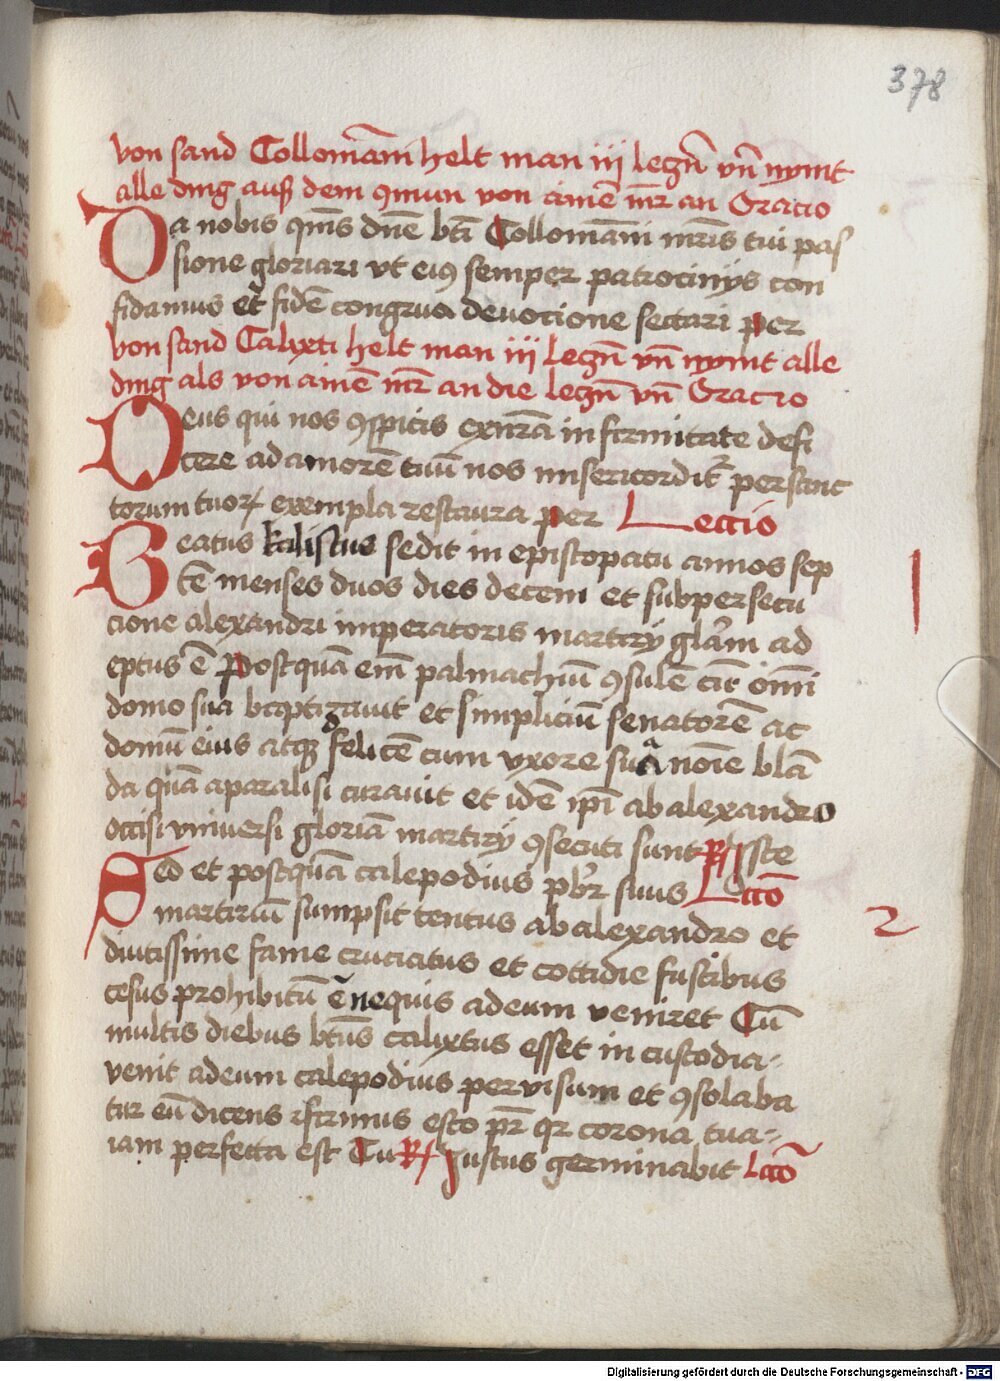 378
von sand Collomāni helt man iij leczn̄ vn̄ nymt
alle ding auß dem 9mun von ainē mr̄ an Oracio
Da nobis qm̄s dn̄e bt̄i Collomāni mr̄is tui pas
sione gloriari vt ei9 semper patrocinijs con
fidamus et fidē congrua deuocione sectari per
von sand Calixti helt man iij leczn̄ vn̄ nymt alle
ding als von ainē mr̄ an die leczn̄ vn̄ Oracio
Deus qui nos 9spicis ex nr̄a infirmitate defi
cere ad amorē tuū nos misericordit̄ per sanc
torum tuoꝝ exempla restaura per Leccio
Beatus kalistus sedit in episcopatu annos sep
tē menses duos dies decem et sub persecu
cione alexandri imperatoris martirij glām ad
eptus ē Postquā em̄ palmachiū 9sulē cū om̄i
domo sua baptizauit et simpliciū senatorē ac
domū eius atq3 felicē cum vxore sua noīe blā
da quā a paralisi curauit et idē ip̄i ab alexandro
occisi vniuersi gloriā martirij 9secuti sunt R/ Iste
Sed et postquā calepodius pb̄r suus Lcc̄o
martiriū sumpsit tentus ab alexandro et 2
diutissime fame cruciatus et cottidie fustibus
cesus prohibitū ē ne quis ad eum veniret Cū
multis diebus bt̄us calixtus esset in custodia
venit ad eum calepodius per visum et 9solaba
tur eū dicens firmus esto pr̄ qr corona tua
iam perfecta est Tu R/ Justus germinabit Lcc̄o
Digitalisierung gefördert durch die Deutsche Forschungsgemeinschaft - DFG